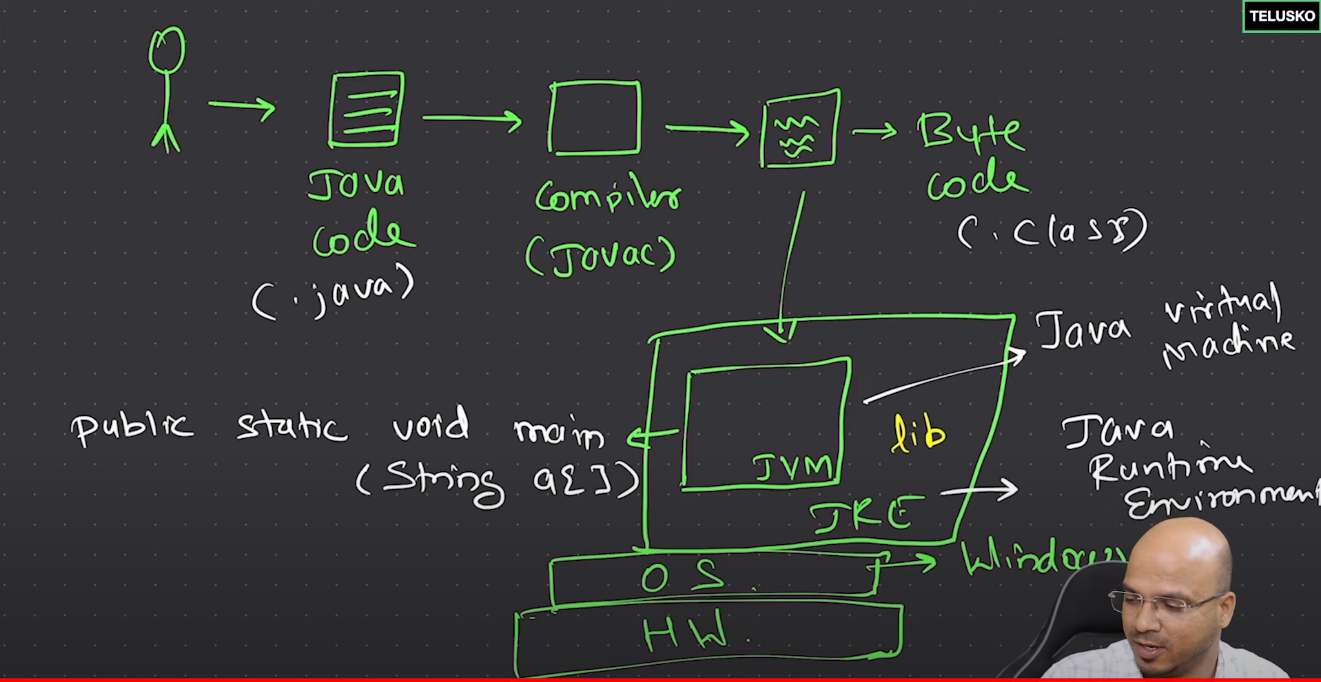 TELUSKO
Java
code
(.java)
Compiler
(Javac)
Byte
code
(.class)
Java virtual
machine
public static void main
(String a[])
lib
JVM
Java
Runtime
Environment
JRE
OS
Windows
HW.